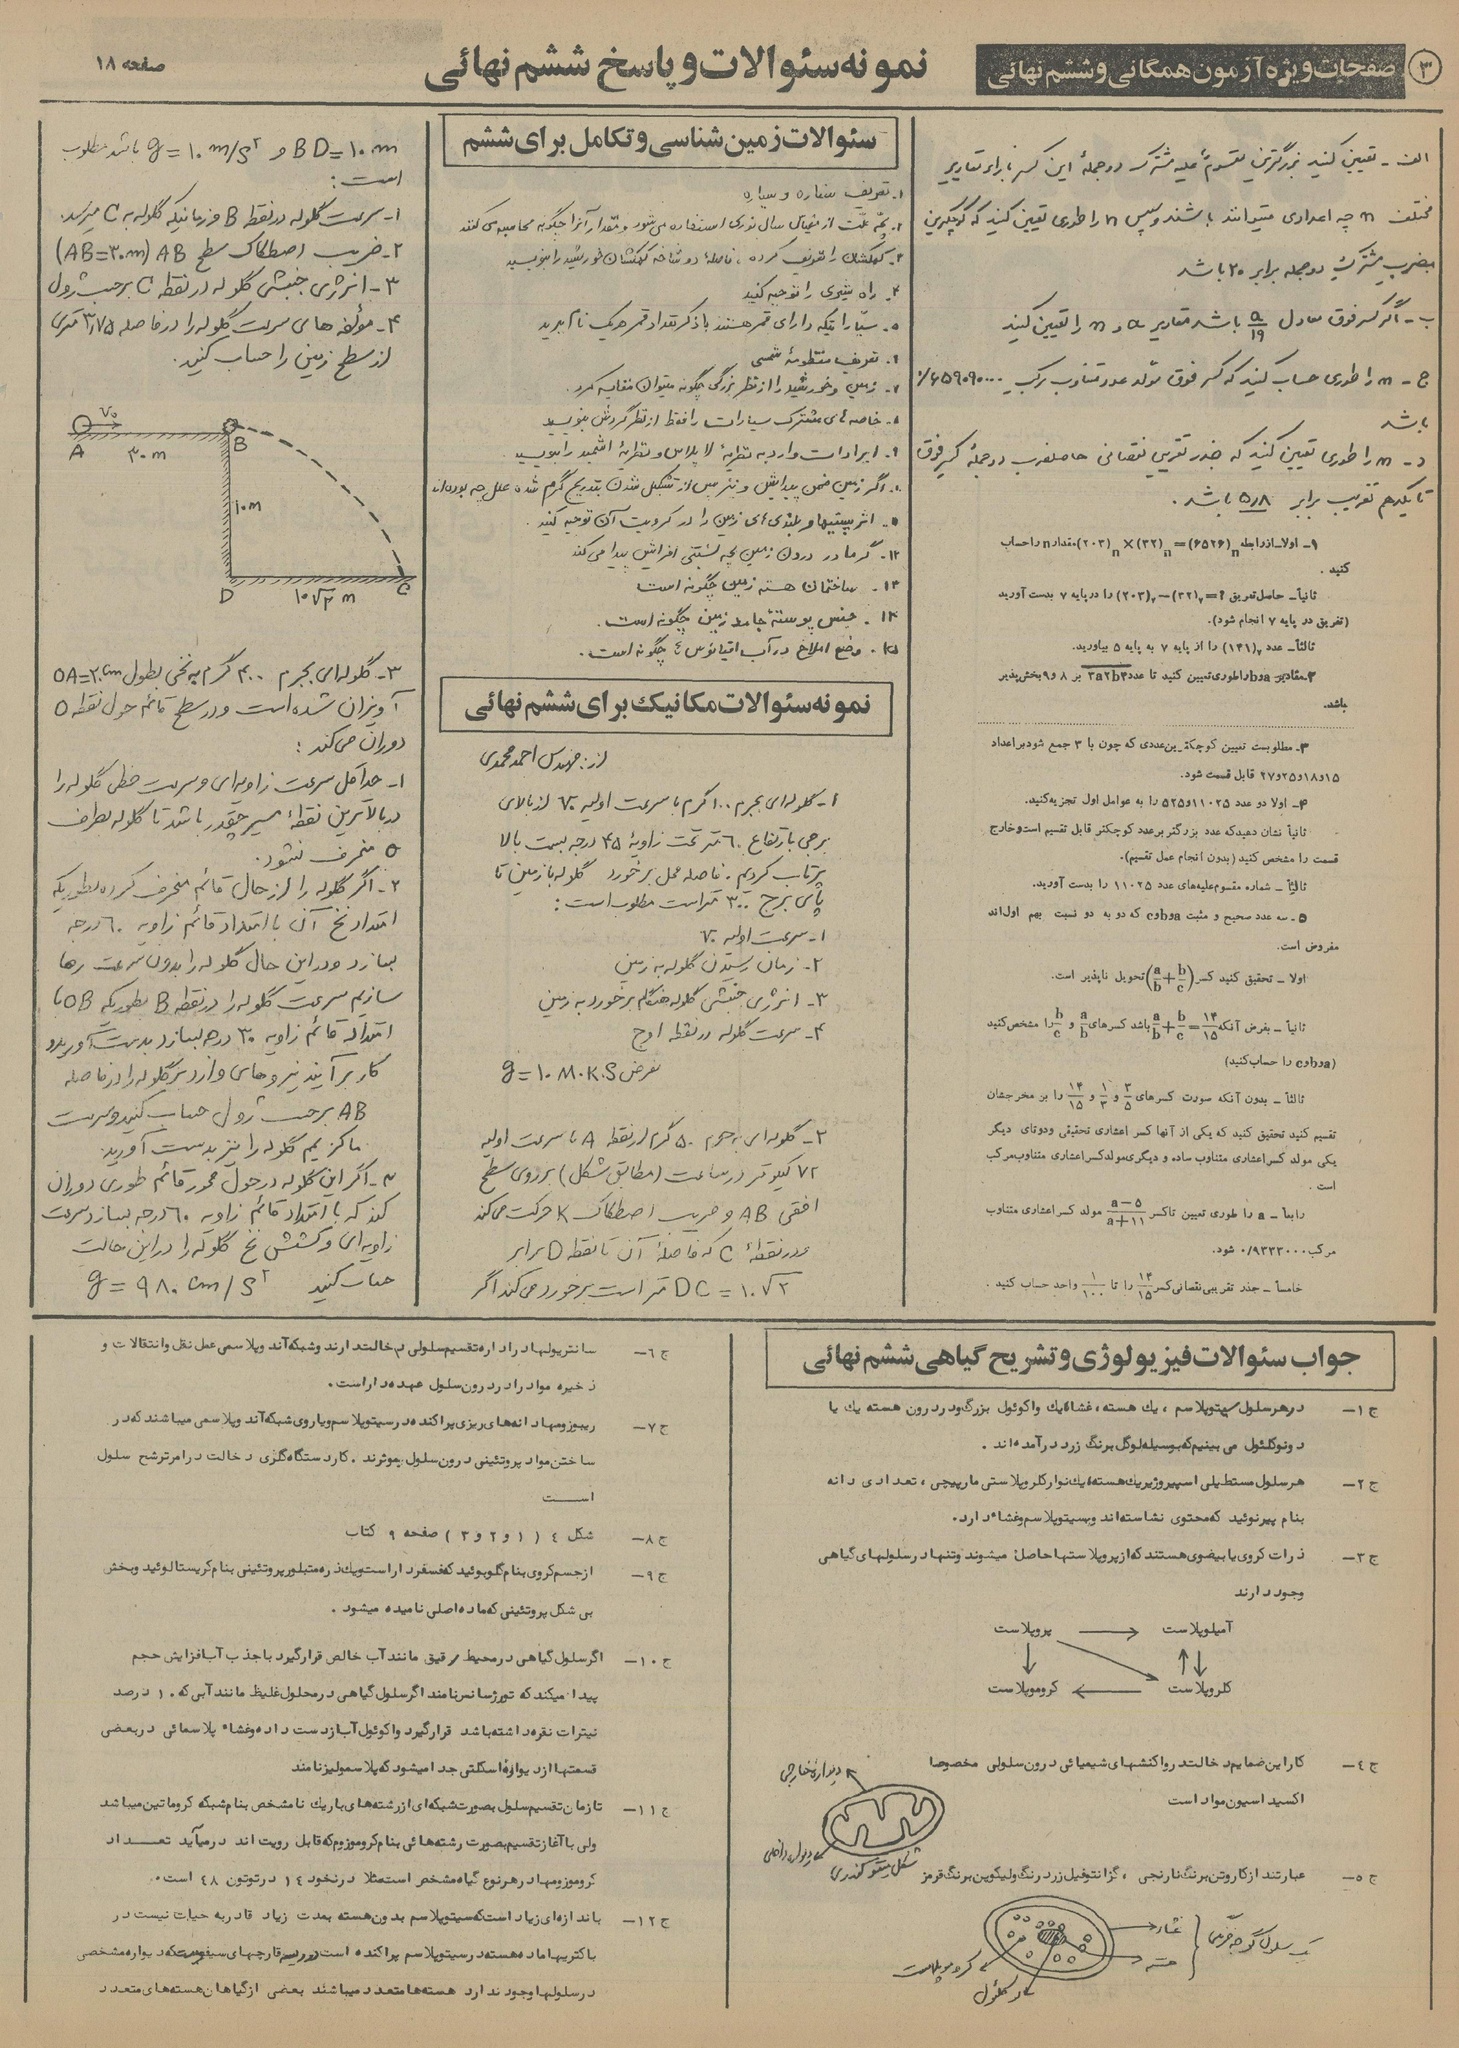 ۳ صفحات ویژه آزمون همگانی و ششم نهائی
نمونه سئوالات و پاسخ ششم نهائی
صفحه ۱۸
الف - تعیین کنید بزرگترین مقسوم‌ٌ علیه مشترک دو جملهٔ این کسر بازاء مقادیر
مختلف n چه اعدادی میتوانند باشند و سپس n را طوری تعیین کنید که کوچکترین
مضرب مشترک دو جمله برابر ۲۰ باشد
ب - اگر کسر فوق معادل a/۱۹ باشد مقادیر a و n را تعیین کنید
ج - n را طوری حساب کنید که کسر فوق مولد عدد متناوب مرکب
باشد
د - n را طوری تعیین کنید که جذر تقریبی نقصانی حاصلضرب دو جملهٔ کسر فوق
تا یکدهم تقریب برابر ۵ر۸ باشد .
۱- اولا- از رابطه (۶۵۲۶)n = (۳۲)n × (۲۰۳)n مقدار n را حساب
کنید .
ثانیاً - حاصل تفریق ؟ = (۳۲)۷ - (۲۰۳)۷ را در پایه ۷ بدست آورید
(تفریق در پایه ۷ انجام شود).
ثالثاً - عدد (۱۴۱)۷ را از پایه ۷ به پایه ۵ بیاورید.
۲- مقادیر a و b را طوری تعیین کنید تا عدد ۳a۲b۳ بر ۸ و ۹ بخش پذیر
باشد.
۳- مطلوبست تعیین کوچکترین عددی که چون با ۳ جمع شود بر اعداد
۱۵ و ۱۸ و ۲۵ و ۲۷ قابل قسمت شود.
۴- اولا دو عدد ۱۱۰۲۵ و ۵۲۵ را به عوامل اول تجزیه کنید.
ثانیاً نشان دهید که عدد بزرگتر بر عدد کوچکتر قابل تقسیم است و خارج
قسمت را مشخص کنید (بدون انجام عمل تقسیم).
ثالثاً - شماره مقسوم علیه‌های عدد ۱۱۰۲۵ را بدست آورید.
۵- سه عدد صحیح و مثبت a و b و c که دو به دو نسبت بهم اول‌اند
مفروض است.
اولا - تحقیق کنید کسر (a/b + b/c) تحویل ناپذیر است.
ثانیاً - بفرض آنکه ۱۴/۱۵ = a/b + b/c باشد کسرهای a/b و b/c را مشخص کنید
(a و b و c را حساب کنید)
ثالثاً - بدون آنکه صورت کسرهای ۳/۵ و ۱/۳ و ۱۴/۱۵ را بر مخرجشان
تقسیم کنید تحقیق کنید که یکی از آنها کسر اعشاری تحقیقی و دوتای دیگر
یکی مولد کسر اعشاری متناوب ساده و دیگری مولد کسر اعشاری متناوب مرکب
است .
رابعاً - a را طوری تعیین تا کسر a-۵/a+۱۱ مولد کسر اعشاری متناوب
مرکب ۰/۹۳۳۳۰۰۰ شود.
خامساً - جذر تقریبی نقصانی کسر ۱۴/۱۵ را تا ۱/۱۰۰ واحد حساب کنید .
سئوالات زمین شناسی و تکامل برای ششم
۱. تعریف ستاره و سیاره
۲. بچه علت از مقیاس سال نوری استفاده می‌شود و مقدار آنرا چگونه محاسبه می‌کنند
۳. کهکشان را تعریف کرده ، فاصلهٔ دو شاخه کهکشان خورشید را بنویسید
۴. راه شیری را توجیه کنید
۵. سیاراتیکه دارای قمر هستند با ذکر تعداد قمر هریک نام ببرید
۶. تعریف منظومهٔ شمسی
۷. زمین و خورشید را از نظر بزرگی چگونه میتوان مقایسه کرد.
۸. خاصه‌های مشترک سیارات را فقط از نظر گردش بنویسید
۹. ایرادات وارد به نظریهٔ لاپلاس و نظریهٔ اشمید را بنویسید .
۱۰. اگر زمین ضمن پیدایش و نیز پس از تشکیل شدن بتدریج گرم شده علل چه بوده‌اند
۱۱. اثر پستیها و بلندی‌های زمین را در کرویت آن توجیه کنید .
۱۲. گرما در درون زمین بچه نسبتی افزایش پیدا می‌کند
۱۳. ساختمان هسته زمین چگونه است
۱۴. جنس پوستهٔ جامد زمین چگونه است .
۱۵. وضع املاح در آب اقیانوس‌ها چگونه است .
نمونه سئوالات مکانیک برای ششم نهائی
از : مهندس احمد محمدی
۱- گلوله‌ای بجرم ۱۰۰ گرم با سرعت اولیه V₀ از بالای
برجی بارتفاع ۶۰ متر تحت زاویهٔ ۴۵ درجه بسمت بالا
پرتاب کردیم . فاصله محل برخورد گلوله با زمین تا
پای برج ۳۰۰ متر است مطلوب است :
۱- سرعت اولیه V₀
۲- زمان رسیدن گلوله به زمین
۳- انرژی جنبشی گلوله هنگام برخورد به زمین
۴- سرعت گلوله در نقطه اوج
بفرض g = ۱۰ M.K.S
۲- گلوله‌ای به جرم ۵۰ گرم از نقطه A با سرعت اولیه
۷۲ کیلومتر در ساعت (مطابق شکل) بر روی سطح
افقی AB و ضریب اصطکاک K حرکت می‌کند
و در نقطهٔ C که فاصلهٔ آن تا نقطه D برابر
DC = ۱۰√۲ متر است برخورد می‌کند اگر
BD = ۱۰ m و g = ۱۰ m/s² باشد مطلوب
است :
۱- سرعت گلوله در نقطه B و زمانیکه گلوله به C میرسد.
۲- ضریب اصطکاک سطح AB (AB=۳۰m)
۳- انرژی جنبشی گلوله در نقطه C بر حسب ژول
۴- مؤلفه‌های سرعت گلوله را در فاصله ۳٫۷۵ متری
از سطح زمین را حساب کنید.
V₀
A
۳۰ m
B
۱۰ m
D
۱۰√۳ m
C
۳- گلوله‌ای بجرم ۴۰۰ گرم به نخی بطول OA=۲۰cm
آویزان شده است و در سطح قائم حول نقطه O
دوران می‌کند :
۱- حداقل سرعت زاویه‌ای و سرعت خطی گلوله را
در بالاترین نقطهٔ مسیر چقدر باشد تا گلوله بطرف
O منحرف نشود.
۲- اگر گلوله را از حال قائم منحرف کرده بطوریکه
امتداد نخ آن با امتداد قائم زاویه ۶۰ درجه
بسازد و در این حال گلوله را بدون سرعت رها
سازیم سرعت گلوله را در نقطه B بطوریکه OB با
امتداد قائم زاویه ۳۰ درجه بسازد بدست آورید و
کار برآیند نیروهای وارد بر گلوله را در فاصله
AB بر حسب ژول حساب کنید و سرعت
ماکزیمم گلوله را نیز بدست آورید.
۳- اگر این گلوله در حول محور قائم طوری دوران
کند که با امتداد قائم زاویه ۶۰ درجه بسازد سرعت
زاویه‌ای و کشش نخ گلوله را در این حالت
حساب کنید g = ۹۸۰ cm/s²
جواب سئوالات فیزیولوژی و تشریح گیاهی ششم نهائی
ج ۱- در هر سلول سیتوپلاسم ، یک هسته ، غشاء یک واکوئول بزرگ و در درون هسته یک یا
دو نوکلئول می بینیم که بوسیله لوگل برنگ زرد در آمده‌اند .
ج ۲- هر سلول مستطیلی اسپیروژیر یک هسته ، یک نوار کلروپلاستی مارپیچی ، تعدادی دانه
بنام پیرنوئید که محتوی نشاسته‌اند و سیتوپلاسم و غشاء دارد.
ج ۳- ذرات کروی یا بیضوی هستند که از پروپلاستها حاصل میشوند و تنها در سلولهای گیاهی
وجود دارند
پروپلاست → آمیلوپلاست
کروموپلاست ← کلروپلاست
ج ٤- کار این ضمایم دخالت در واکنشهای شیمیائی درون سلولی مخصوصا
اکسیداسیون مواد است
دیواره خارجی
دیواره داخلی
شکل میتوکندری
ج ٥- عبارتند از کاروتن برنگ نارنجی ، گزانتوفیل زرد رنگ و لیکوپن برنگ قرمز
یک سلول گوجه فرنگی
غشاء
هسته
کروموپلاست
ج ٦- سانتریولها در اداره تقسیم سلولی دخالت دارند و شبکه آندوپلاسمی عمل نقل و انتقالات و
ذخیره مواد را در درون سلول عهده دار است.
ج ۷- ریبوزومها دانه‌های ریزی پراکنده در سیتوپلاسم و یا روی شبکه آندوپلاسمی میباشند که در
ساختن مواد پروتئینی درون سلول موثرند . کار دستگاه گلژی دخالت در امر ترشح سلول
است
ج ۸- شکل ٤ ( ۱ و ۲ و ۳ ) صفحه ۹ کتاب
ج ۹- از جسم کروی بنام گلوبوئید که فسفر دار است و یک ذره متبلور پروتئینی بنام کریستالوئید و بخش
بی شکل پروتئینی که ماده اصلی نامیده میشود .
ج ۱۰- اگر سلول گیاهی در محیط رقیق مانند آب خالص قرار گیرد با جذب آب افزایش حجم
پیدا میکند که تورژسانس نامند اگر سلول گیاهی در محلول غلیظ مانند آبی که ۱۰ درصد
نیترات نقره داشته باشد قرار گیرد واکوئول آب از دست داده و غشاء پلاسمائی در بعضی
قسمتها از دیوارهٔ اسکلتی جدا میشود که پلاسمولیز نامند
ج ۱۱- تا زمان تقسیم سلول بصورت شبکه ای از رشته‌های باریک نامشخص بنام شبکه کروماتین میباشد
ولی با آغاز تقسیم بصورت رشته‌هائی بنام کروموزوم که قابل رویت اند در میآید تعداد
کروموزومها در هر نوع گیاه مشخص است مثلا در نخود ۱٤ در توتون ٤۸ است .
ج ۱۲- باندازه‌ای زیاد است که سیتوپلاسم بدون هسته بمدت زیاد قادر به حیات نیست در
باکتریها ماده هسته در سیتوپلاسم پراکنده است در قارچهای که دیواره مشخصی
در سلولها وجود ندارد هسته‌ها متعدد میباشند بعضی از گیاهان هسته‌های متعدد